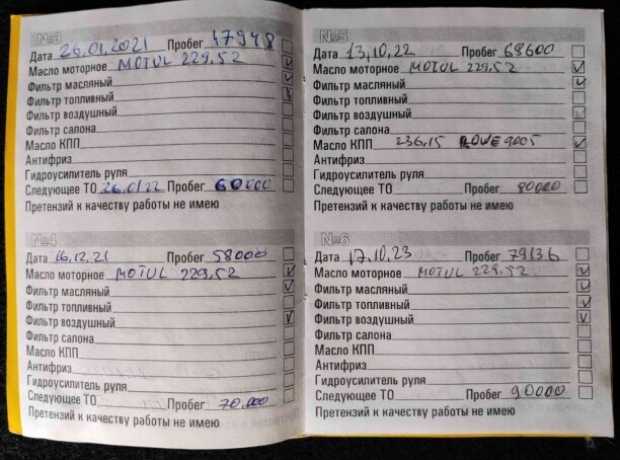 №3
Дата 26.01.2021 Пробег 47948
Масло моторное MOTUL 229.52
Фильтр масляный
Фильтр топливный
Фильтр воздушный
Фильтр салона
Масло КПП
Антифриз
Гидроусилитель руля
Следующее ТО 26.01.22 Пробег 60000
Претензий к качеству работы не имею
№4
Дата 16.12.21 Пробег 58000
Масло моторное MOTUL 229.52
Фильтр масляный
Фильтр топливный
Фильтр воздушный
Фильтр салона
Масло КПП
Антифриз
Гидроусилитель руля
Следующее ТО Пробег 70.000
Претензий к качеству работы не имею
№5
Дата 13,10,22 Пробег 68600
Масло моторное MOTUL 229.52
Фильтр масляный
Фильтр топливный
Фильтр воздушный
Фильтр салона
Масло КПП 236,15 ROWE 9005
Антифриз
Гидроусилитель руля
Следующее ТО Пробег 80000
Претензий к качеству работы не имею
№6
Дата 17,10,23 Пробег 79136
Масло моторное MOTUL 229.52
Фильтр масляный
Фильтр топливный
Фильтр воздушный
Фильтр салона
Масло КПП
Антифриз
Гидроусилитель руля
Следующее ТО Пробег 90000
Претензий к качеству работы не имею